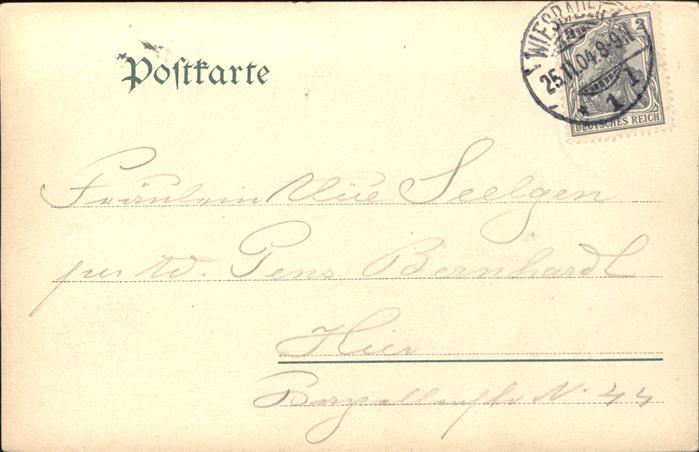 WIESBADEN
25.11.04.8-9N
* 1 1
2
DEUTSCHES REICH
Postkarte
Fräulein Seelgen
per Ad. Pens Bernhardt
Hier
N. 44